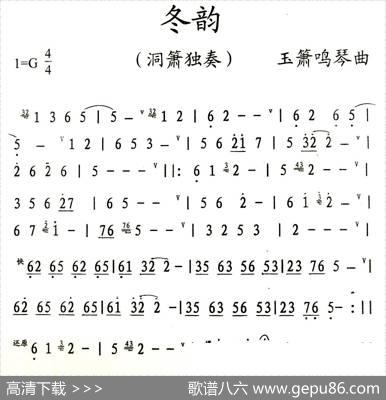 冬韵
1=G 4/4 （洞箫独奏） 玉箫鸣琴曲
1 3 6 5 | 5 - - 1 2 | 6 2 - - | 6 2 6 5 |
5 - - - | 1 2 1 6 | 5 3 - - | 5 6 21 7 | 5 32 2 - |
2 6 2 6 | 5 - - - ||: 6 1 2 - | 5 2 - - |
3 5 6 27 | 6 5 - - | 5 6 2 - | 6 1 1 2 |
6 7 1 - | 76 5 - - | 3 2 5 3 | 2 - - - |
快 62 65 62 65 | 61 32 2 - | 35 63 56 53 | 23 76 5 - |
62 65 62 65 | 61 32 2 - | 35 63 56 53 | 23 76 5 - :||
还原 6 1 2 - | 5 2 - - |
高清下载 >>> 歌谱八六 www.gepu86.com